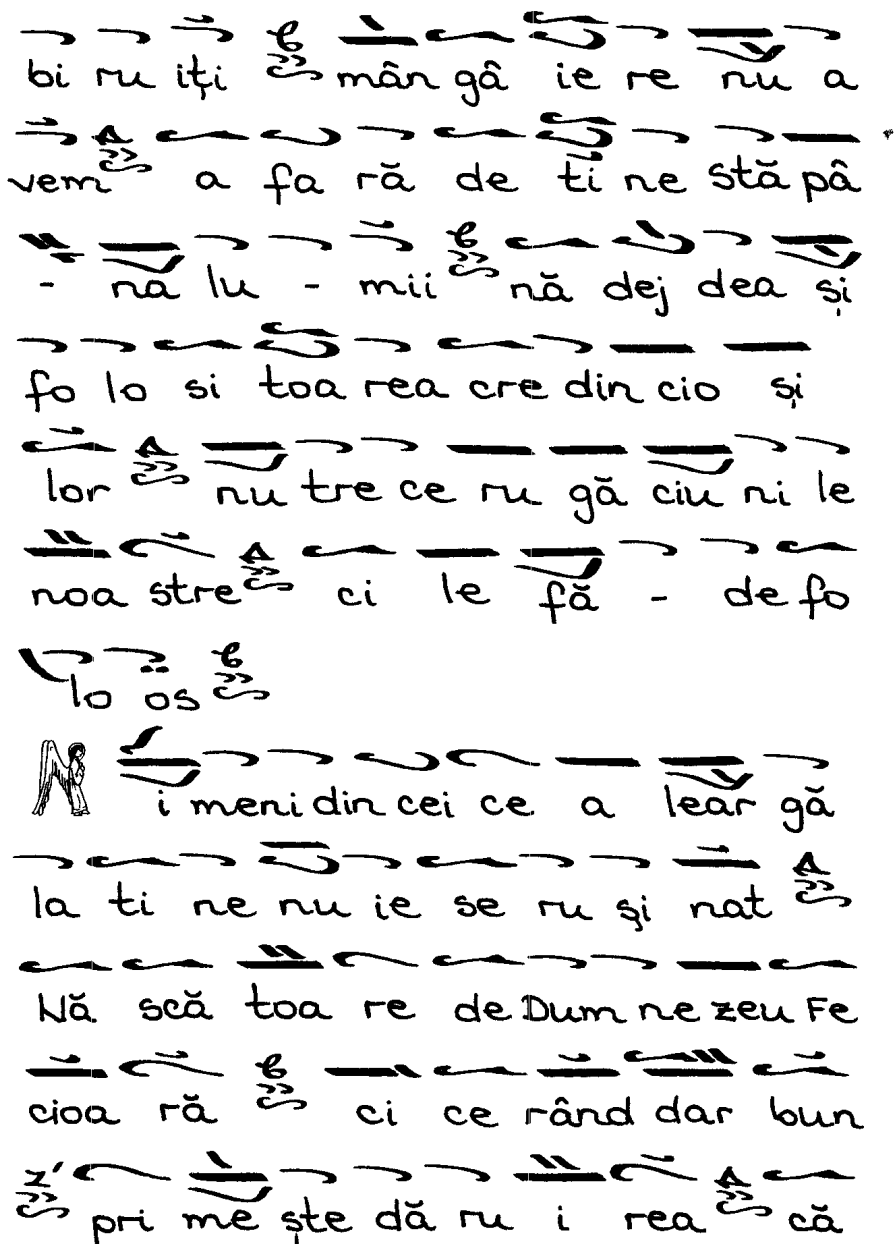 bi ru iți mân gâ ie re nu a
vem a fa ră de ti ne stă pâ
- na lu - mii nă dej dea și
fo lo si toa rea cre din cio și
lor nu tre ce ru gă ciu ni le
noa stre ci le fă - de fo
lo os
N i meni din cei ce a lear gă
la ti ne nu ie se ru și nat
Nă scă toa re de Dum ne zeu Fe
cioa ră ci ce rând dar bun
pri me ște dă ru i rea că